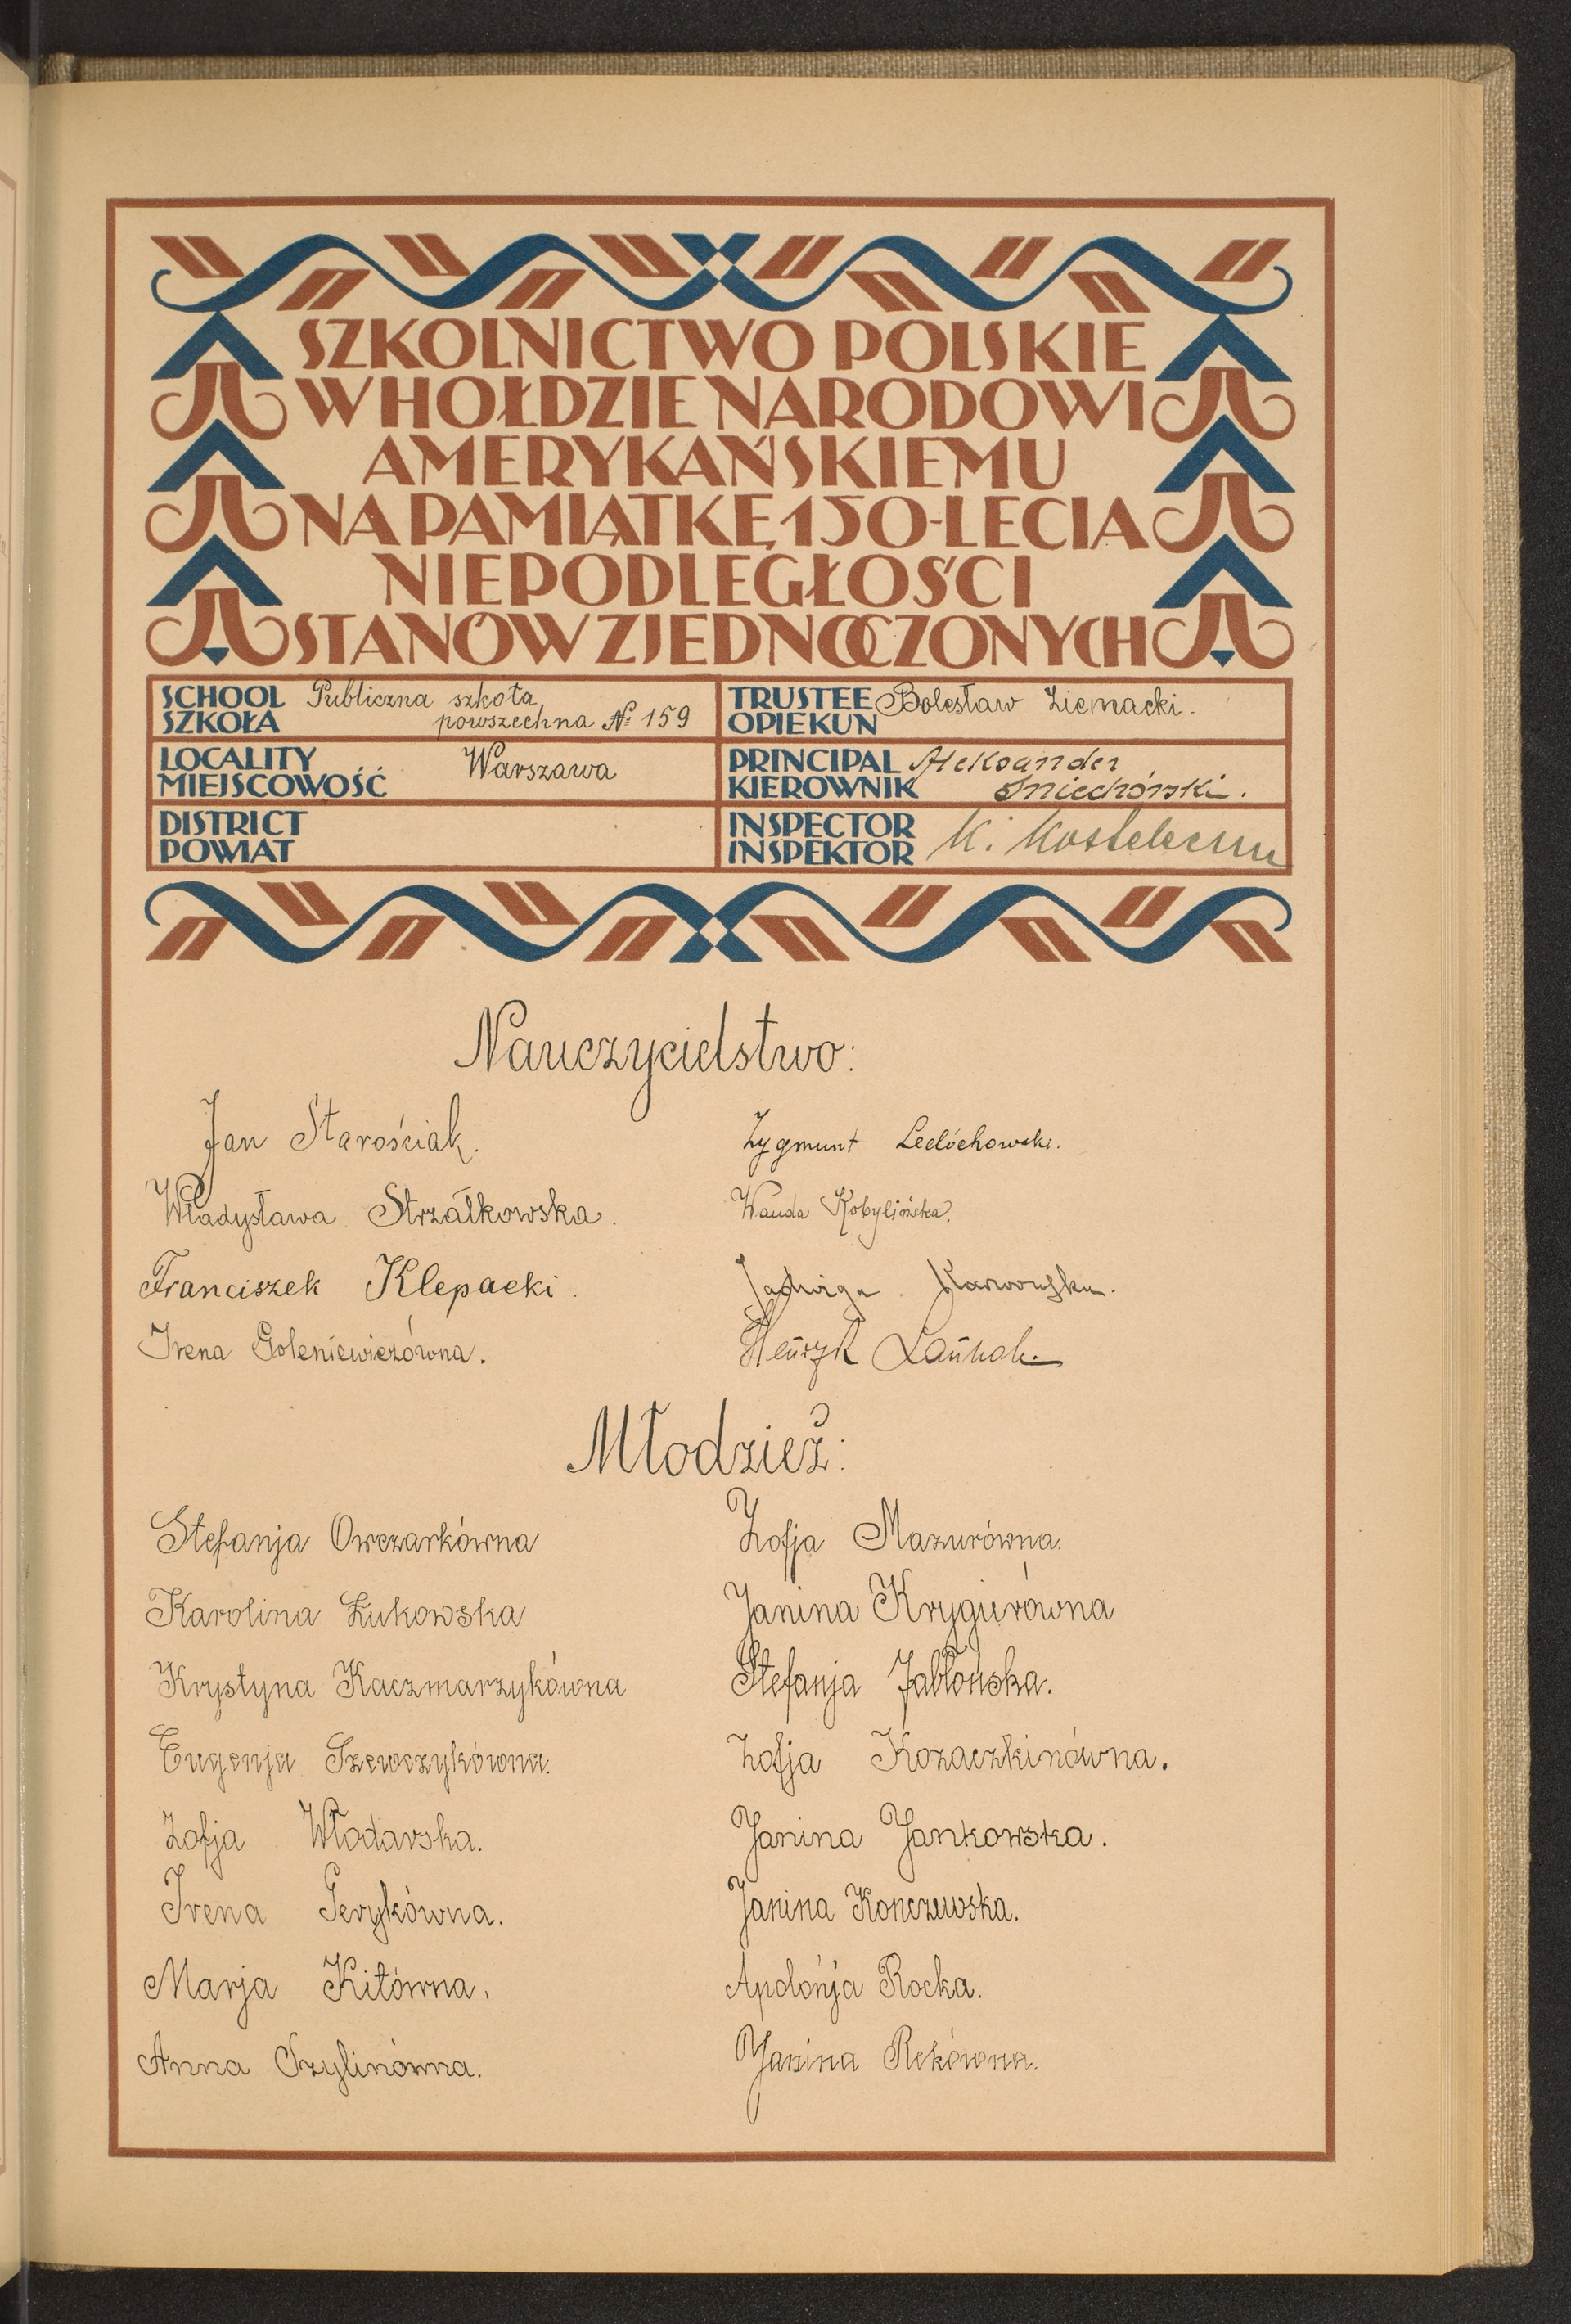 SZKOLNICTWO POLSKIE
W HOŁDZIE NARODOWI
AMERYKAŃSKIEMU
NA PAMIĄTKĘ 150-LECIA
NIEPODLEGŁOŚCI
STANÓW ZJEDNOCZONYCH
SCHOOL
SZKOŁA
Publiczna szkoła
powszechna № 159
TRUSTEE
OPIEKUN
Bolesław Ziemacki.
LOCALITY
MIEJSCOWOŚĆ
Warszawa
PRINCIPAL
KIEROWNIK
Aleksander
Śniechórski.
DISTRICT
POWIAT
INSPECTOR
INSPEKTOR
K.
Nauczycielstwo:
Jan Starościak.
Zygmunt Ledóchowski.
Władysława Strzałkowska.
Wanda Kobylińska.
Franciszek Klepacki.
Jadwiga Karwowska.
Irena Goleniewiczówna.
Henryk
Młodzież:
Stefanja Owczarkówna
Zofja Mazurówna.
Karolina Żukowska
Janina Krygierówna
Krystyna Kaczmarzykówna
Stefanja Jabłońska.
Eugenja Szewczykówna.
Zofja Kozaczkinówna.
Zofja Włodarska.
Janina Jankowska.
Irena Gerykówna.
Janina Konczewska.
Marja Kitówna.
Apolonja Rocka.
Anna Szylinówna.
Janina Rekówna.